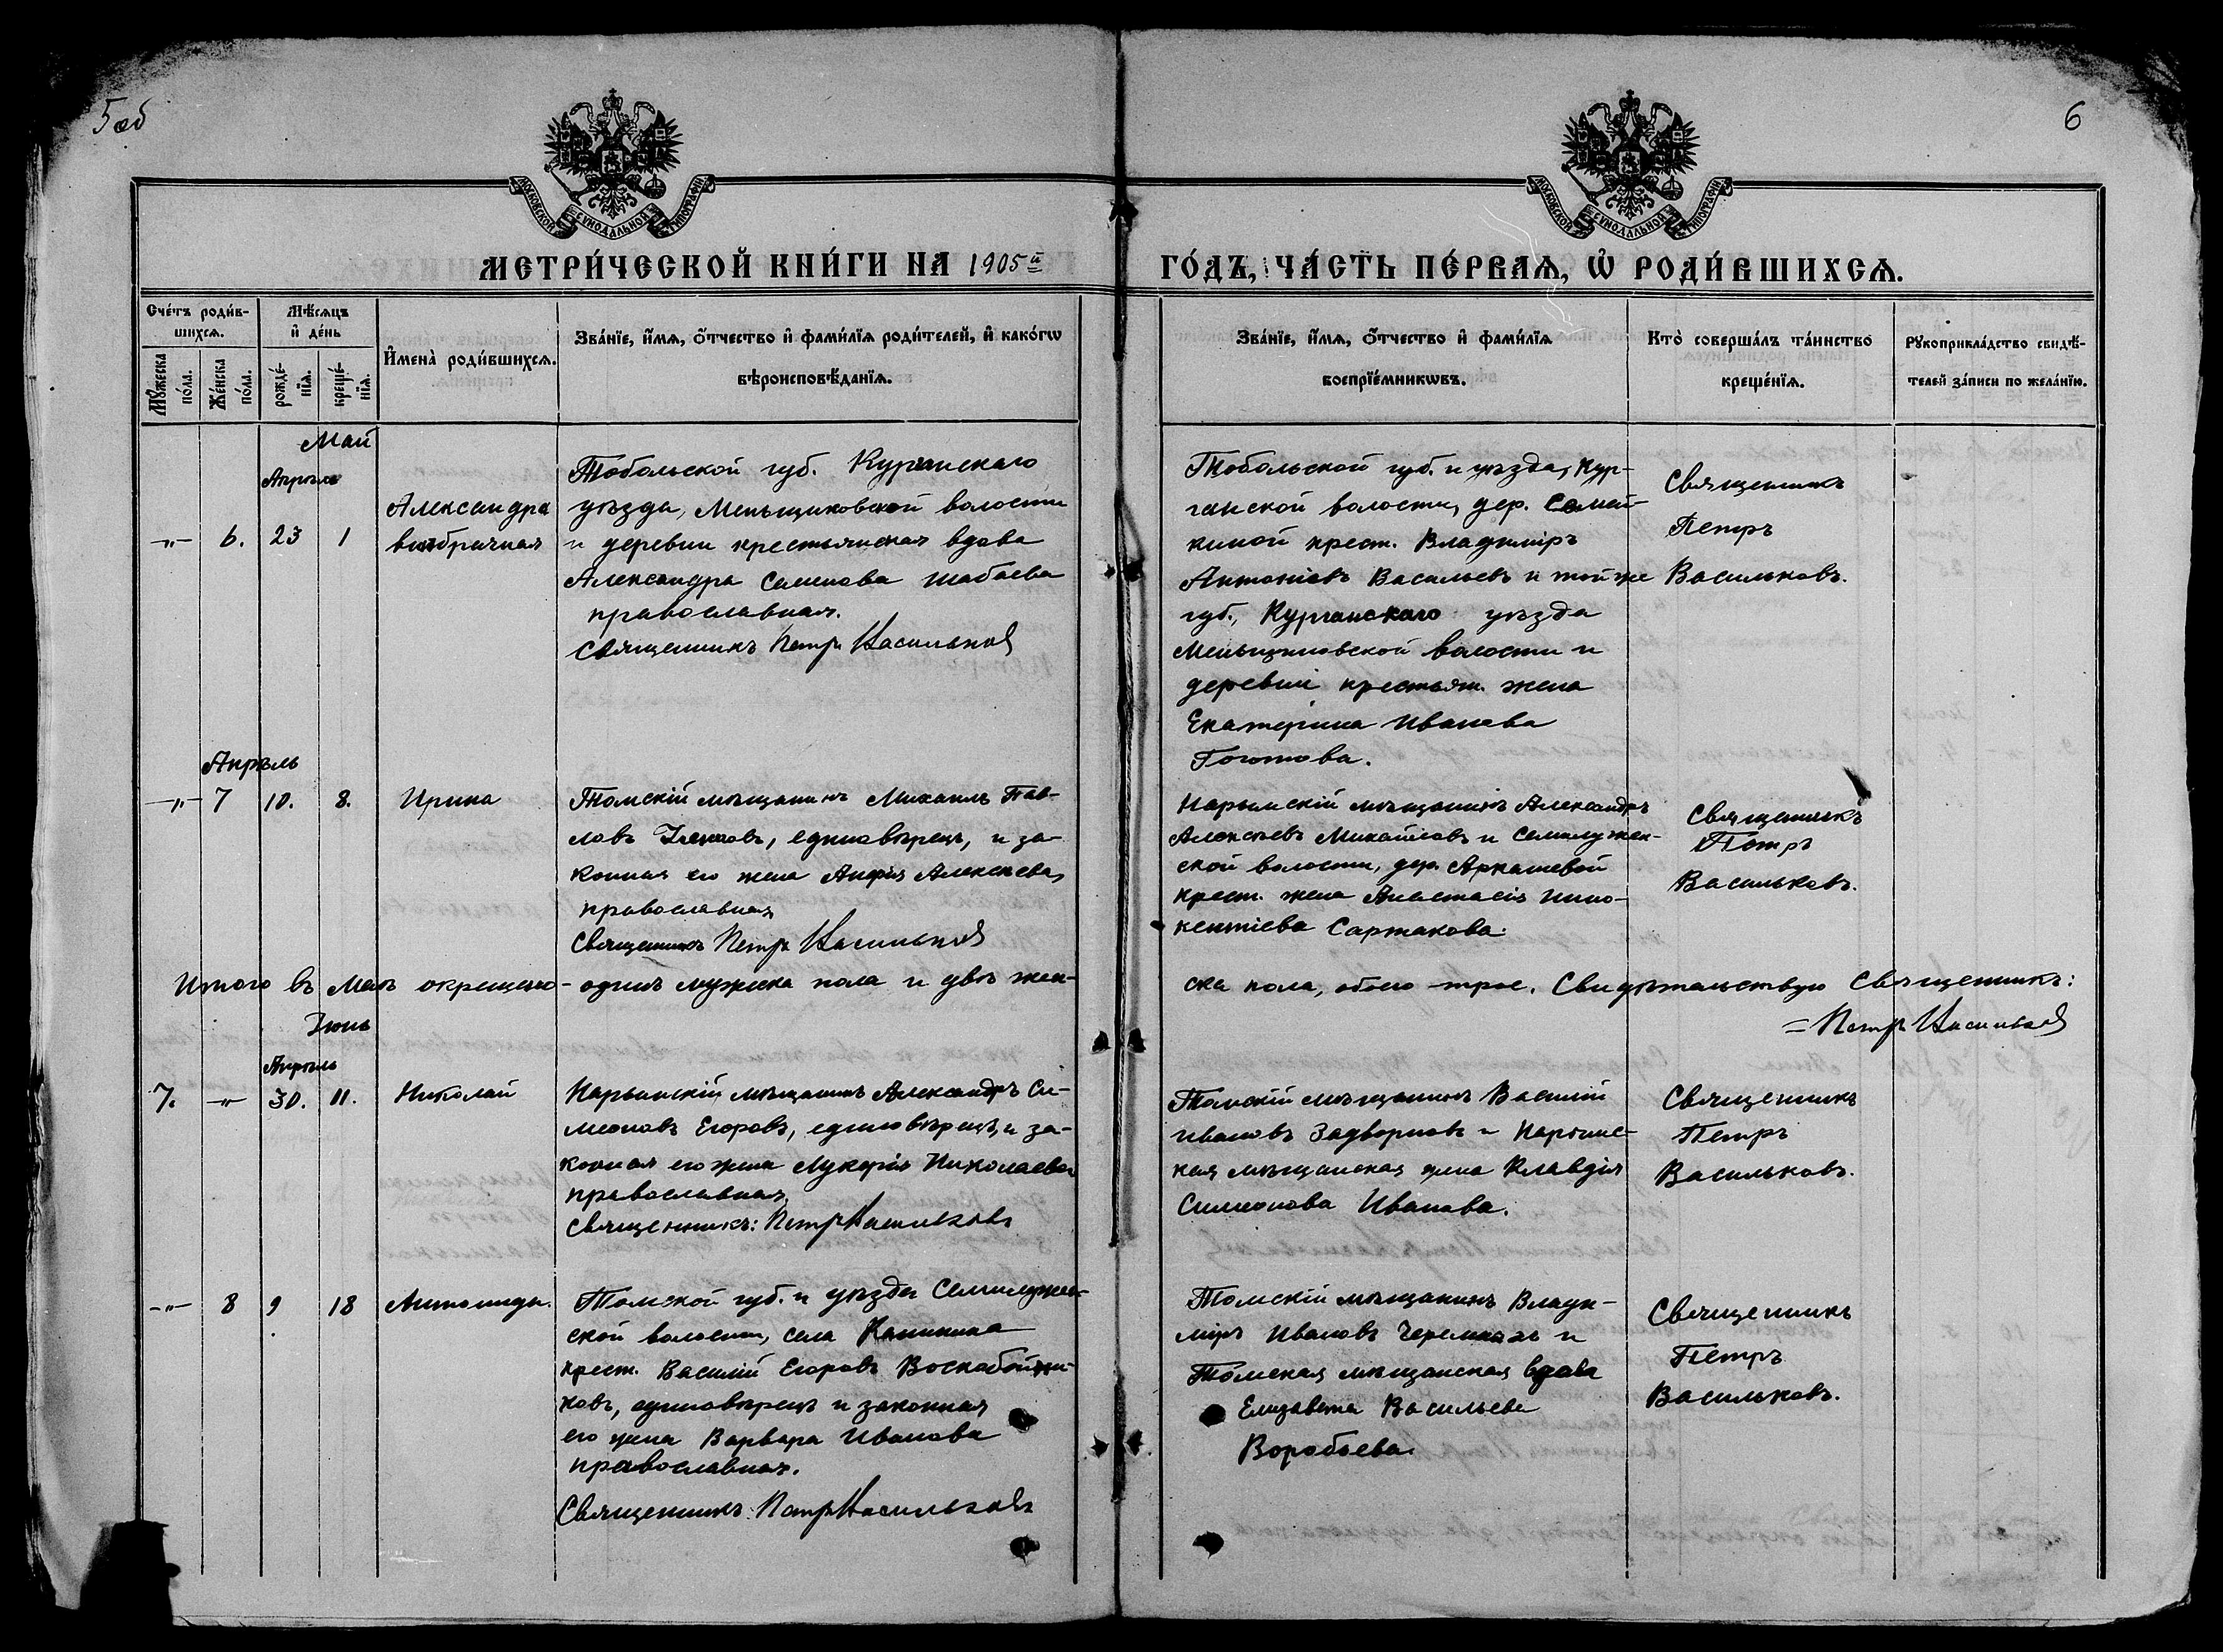 5 об
6
МОСКОВСКОЙ СѴНОДАЛЬНОЙ ТИПОГРАФІИ
МОСКОВСКОЙ СѴНОДАЛЬНОЙ ТИПОГРАФІИ
МЕТРИ́ЧЕСКОЙ КНИ́ГИ НА 1905й
ГО́ДЪ, ЧА́СТЬ ПЕ́РВАѦ, Ѽ РОДИ́ВШИХСѦ.
Сче́тъ роди́в-
шихсѧ.
Мѣ́сѧцъ
и҆ де́нь
Мꙋ́жеска
по́ла.
Же́нска
по́ла.
рожде́-
нїѧ.
креще́-
нїѧ.
И҆мена̀ роди́вшихсѧ.
Зва́нїе, и҆́мѧ, ѻ҆́тчество и҆ фами́лїѧ роди́телей, и҆ како́гѡ
вѣроисповѣ́данїѧ.
Зва́нїе, и҆́мѧ, ѻ҆́тчество и҆ фами́лїѧ
воспрїе́мникѡвъ.
Кто̀ соверша́лъ та́инство
креще́нїѧ.
Рꙋкоприкла́дство свидѣ́-
телей за́писи по жела́нїю.
Май
Апрѣль
-"- 6. 23 1
Александра
внѣбрачная
Тобольской губ. Курганскаго
уѣзда, Меньщиковской волости
и деревни крестьянская вдова
Александра Семенова Шабаева
православная.
Священникъ Петръ Васильков
Тобольской губ. и уѣзда, Кур-
ганской волости, дер. Семей-
киной крест. Владиміръ
Антоніевъ Васильевъ и той же
губ., Курганскаго уѣзда
Меньщиковской волости и
деревни крестьян. жена
Екатерина Иванова
Священникъ
Петръ
Васильковъ.
Апрѣль
-"- 7 10. 8. Ирина
Томскій мѣщанинъ Михаилъ Пав-
ловъ единовѣрецъ, и за-
конная его жена Алексѣева,
православная
Священникъ Петръ Васильков
Нарымскій мѣщанинъ Александръ
Алексѣевъ Михайловъ и Семилужен-
ской волости, дер. Аркашевой
крест. жена Анастасія Инно-
кентіева Сартакова.
Священникъ
Петръ
Васильковъ.
Итого въ Маѣ окрещено - одинъ мужеска пола и двѣ жен-
ска пола, обоего трое. Свидѣтельствую Священникъ:
= Петръ Васильков
Іюнь
Апрѣль
7. -"- 30. 11. Николай
Нарымскій мѣщанинъ Александръ Си-
меоновъ Егоровъ, единовѣрецъ, и за-
конная его жена Лукерія Николаева
православная
Священникъ: Петръ Васильковъ
Томскій мѣщанинъ Василій
Ивановъ Задворновъ и Нарымс-
кая мѣщанская жена Клавдія
Симеонова Иванова.
Священникъ
Петръ
Васильковъ.
-"- 8 9 18 Антонида.
Томской губ. и уѣзда Семилужен-
ской волости, села
крест. Василій Егоровъ Воскобойни-
ковъ, единовѣрецъ и законная
его жена Варвара Иванова
православная.
Священникъ: Петръ Васильковъ
Томскій мѣщанинъ Влади-
міръ Ивановъ и
Томская мѣщанская вдова
Елизавета Васильева
Воробьева.
Священникъ
Петръ
Васильковъ.